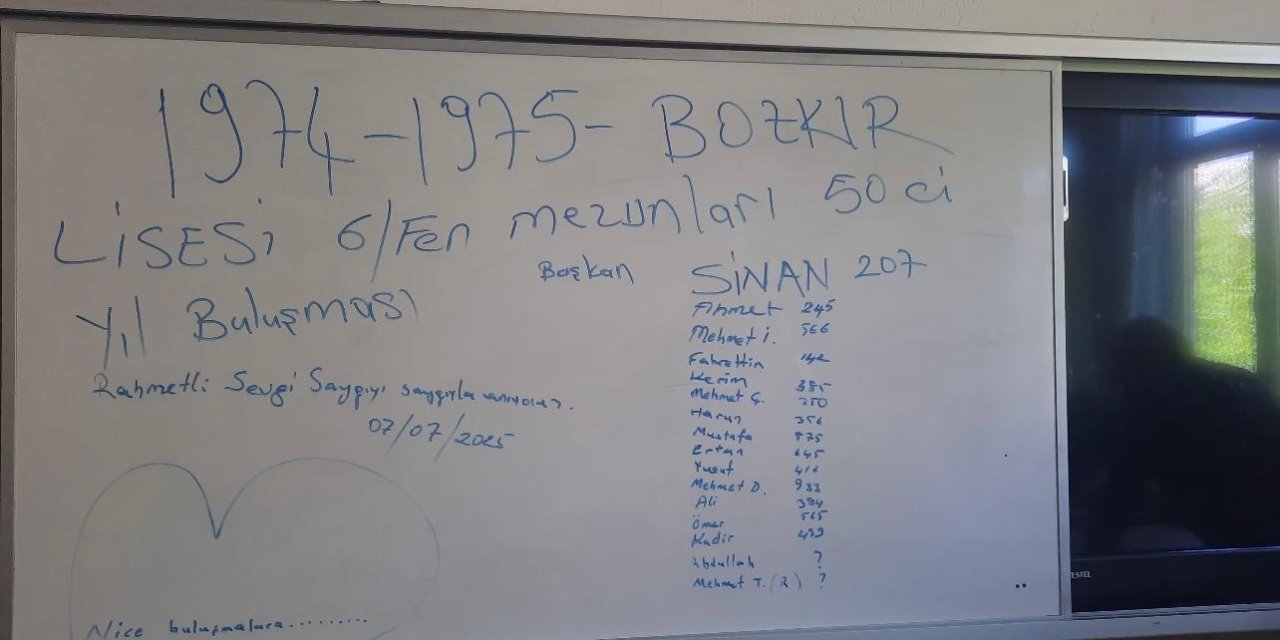 1974-1975- BOZKIR
LİSESİ 6/Fen mezunları 50 ci
Yıl Buluşması
Rahmetli Sevgi Saygıyı saygıyla anıyoruz.
07/07/2025
Nice buluşmalara.........
Başkan SİNAN 207
Ahmet 245
Mehmet İ. 566
Fahrettin 142
Kerim 385
Mehmet Ç. 250
Harun 356
Mustafa 875
Ertan 645
Yusuf 416
Mehmet D. 933
Ali 394
Ömer 565
Kadir 499
Abdullah ?
Mehmet T. (R) ?
ESTEL